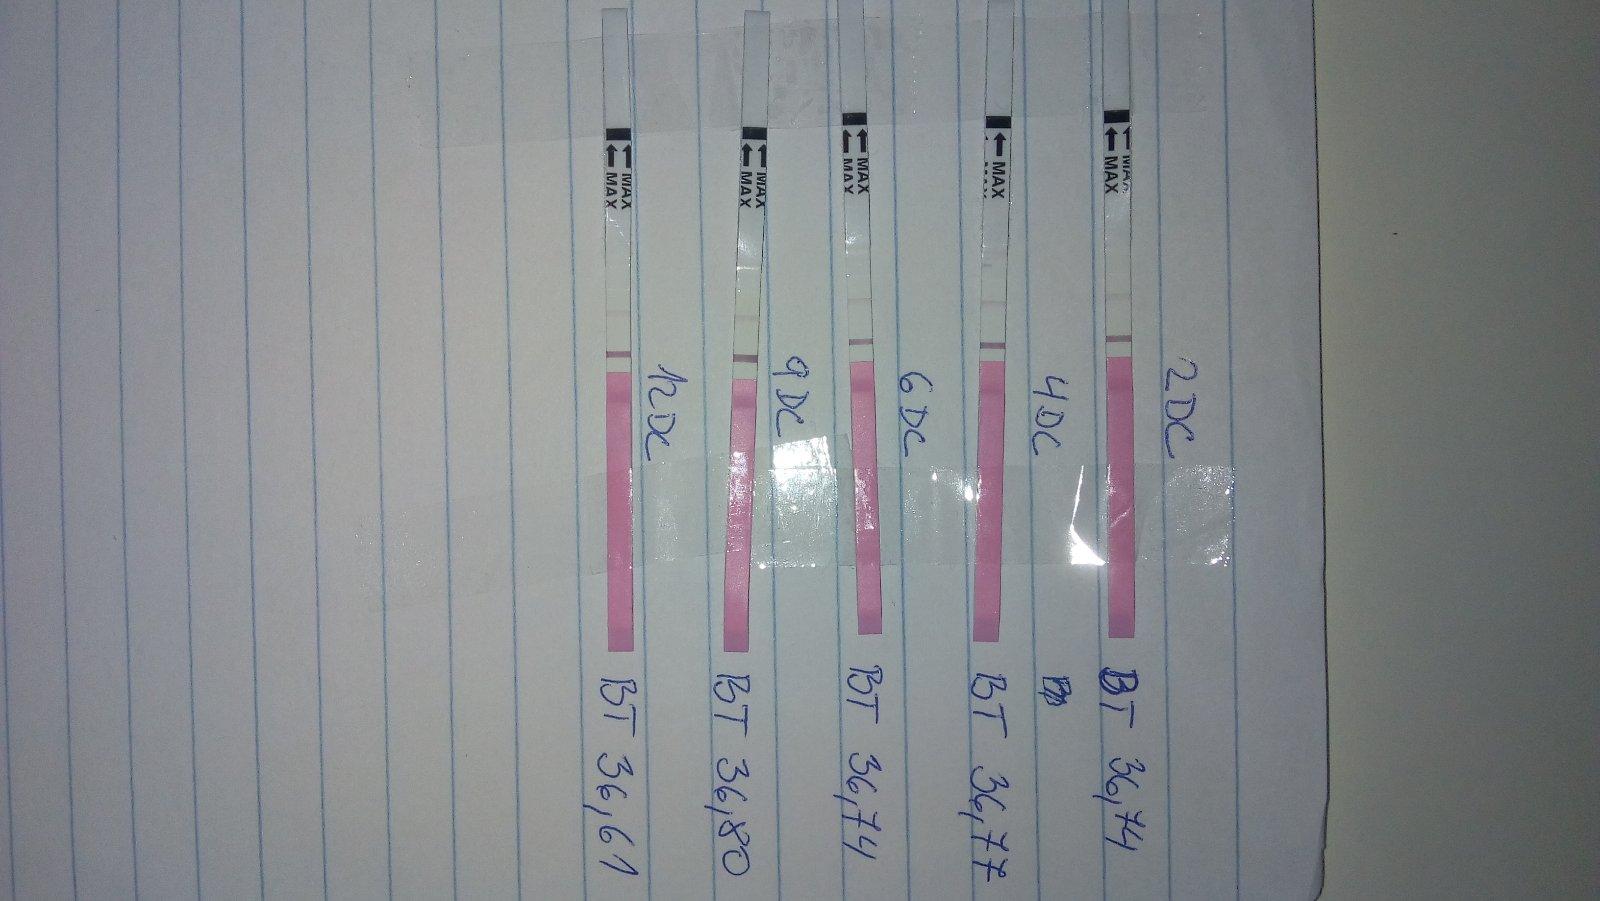 MAX
MAX
12DC
BT 36,61
MAX
MAX
9DC
BT 36,80
MAX
MAX
6DC
BT 36,74
MAX
4DC
BT 36,77
MAX
MAX
2DC
BT 36,74